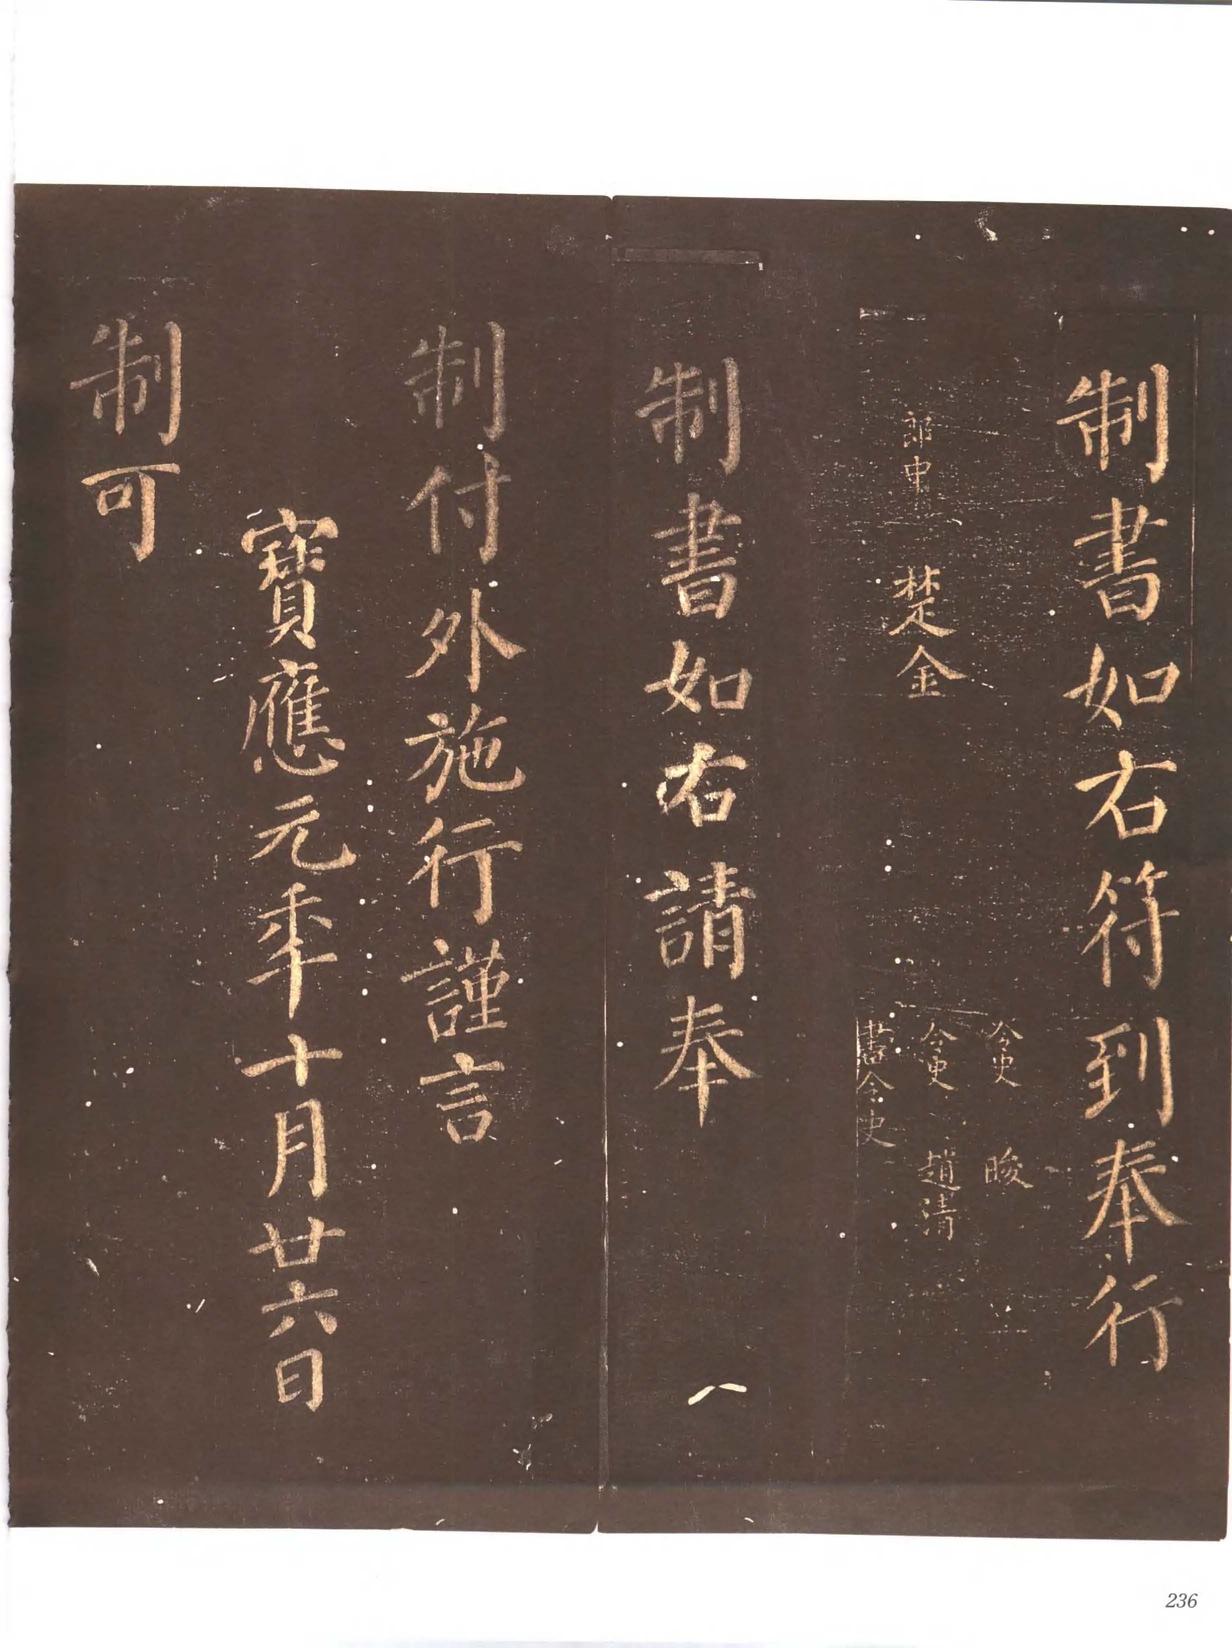 制書如右符到奉行
令史 晙
令史 趙清
書令史
郎中 楚金
制書如右請奉
制付外施行謹言
寶應元秊十月廿六日
制可
236